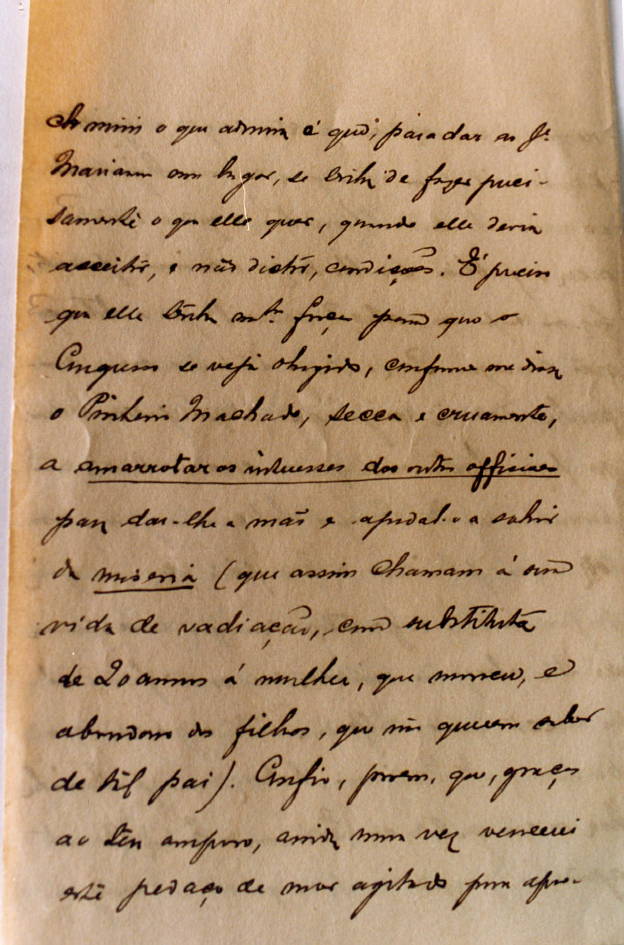 A mim o que admira é que, para dar ao Jé
Marianno um lugar, se tenha de fazer preci-
samente o que elle quer, quando elle devia
acceitar, e não dictar, condições. É preciso
que elle tenha mta. força para que o
Congresso se veja obrigado, conforme me disse
o Pinheiro Machado, secca e cruamente,
a amarrotar os interesses dos outros officiaes
para dar-lhe a mão e ajudal-o a sahir
da miseria (que assim chamam á sua
vida de vadiação, com substituta
de 20 annos á mulher, que morreu, e
abandono dos filhos, que não querem saber
de tal pai). Confio, porem, que, graças
ao teu amparo, ainda uma vez vencerei
este pedaço de mar agitado para apro-